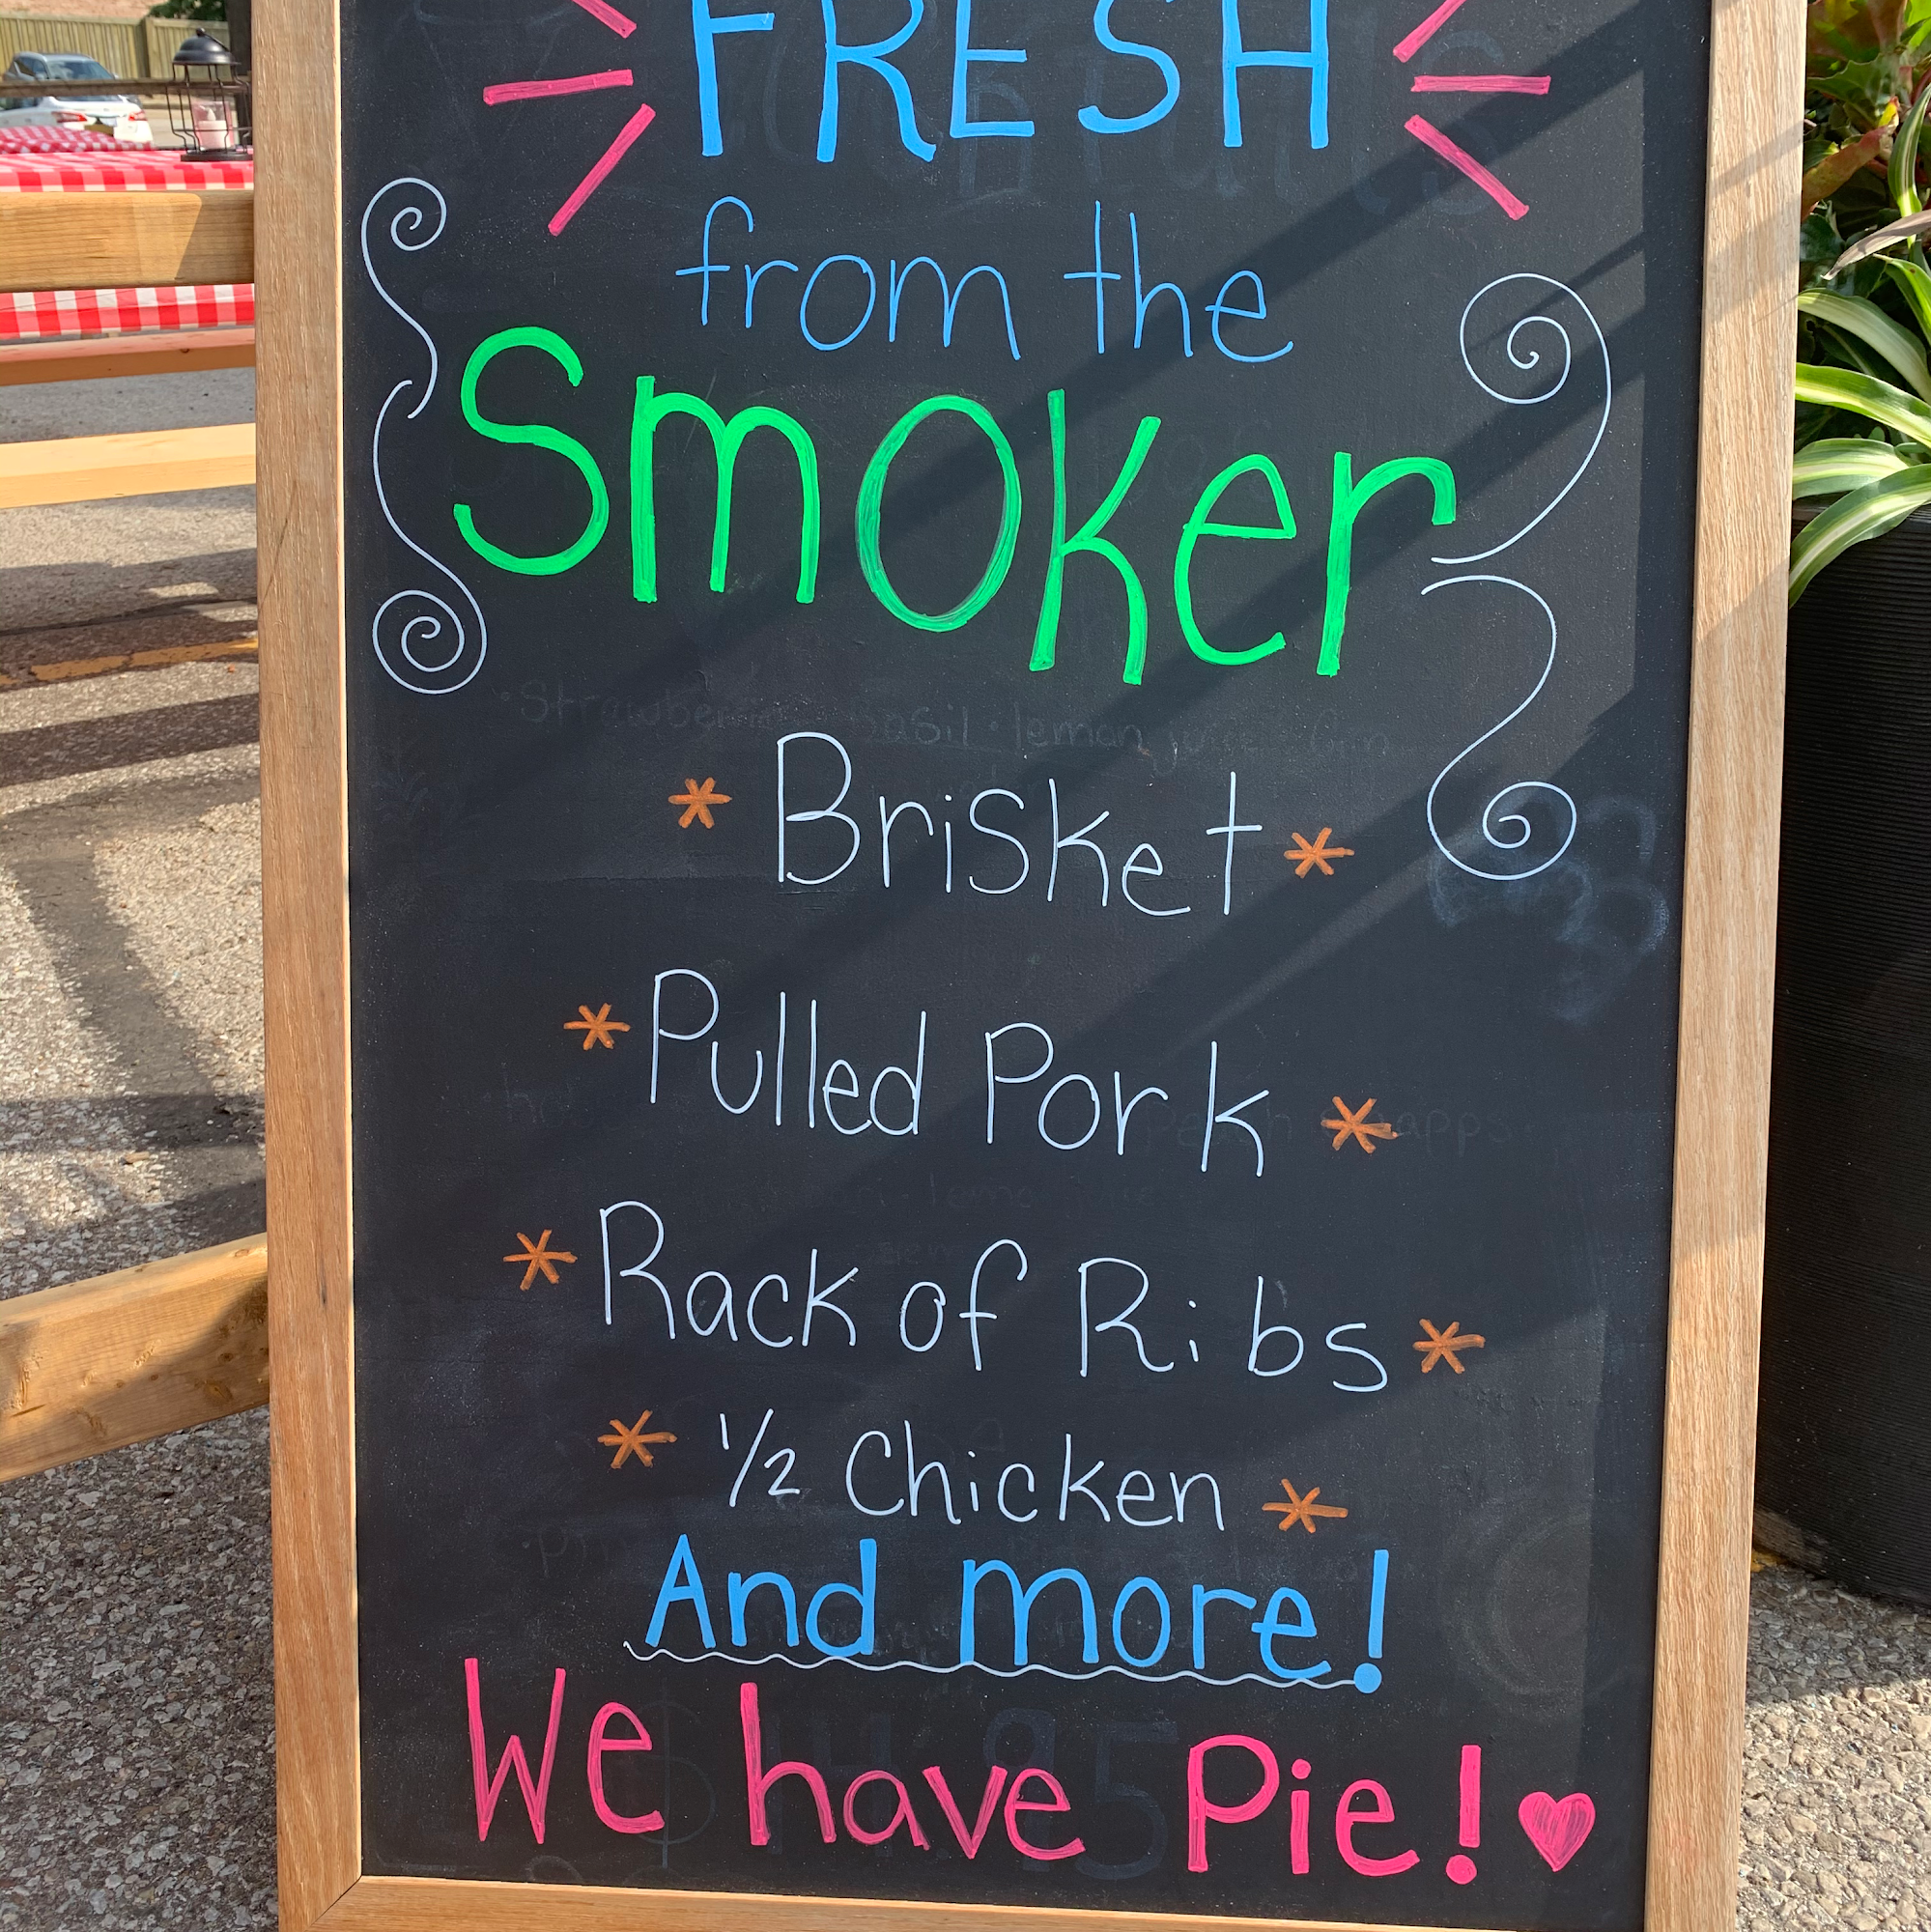 FRESH
from the
Smoker
* Brisket *
* Pulled Pork *
* Rack of Ribs *
* 1/2 Chicken *
And more!
We have Pie!